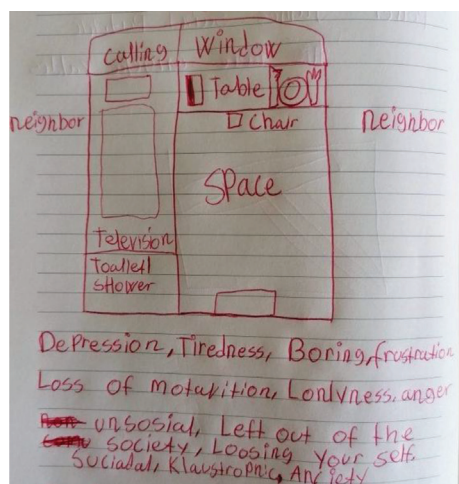 Calling Window
Table
neighbor Chair neighbor
Space
Television
Toallet/
Shower
Depression, Tiredness, Boring, frustration
Loss of motavition, Lonlyness, anger
unsosial, Left out of the
society, Loosing your self.
Suciadal, Klaustrophic, Anciety